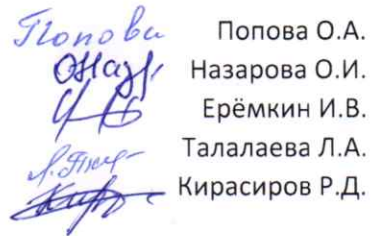 Попова Попова О.А.
ОНаз Назарова О.И.
Ерёмкин И.В.
Талалаева Л.А.
Кирасиров Р.Д.